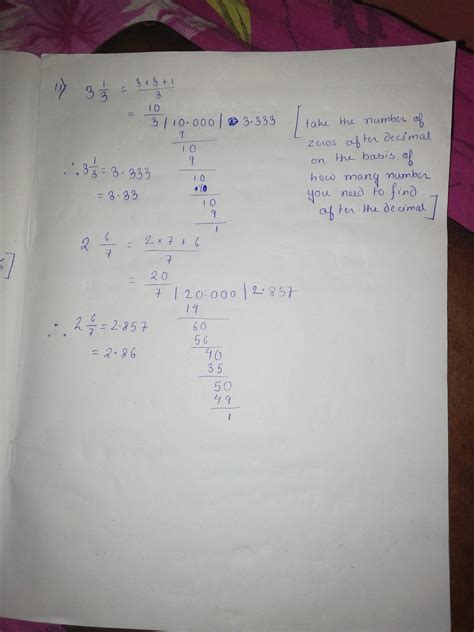 11) 3 1/3 = 3×3+1/3
= 10/3
3 | 10.000 | 3.333
9
10
9
10
9
10
9
1
∴ 3 1/3 = 3.333
= 3.33
[take the number of
zeros after decimal
on the basis of
how many number
you need to find
after the decimal]
2 6/7 = 2×7+6/7
= 20/7
7 | 20.000 | 2.857
19
60
56
40
35
50
49
1
∴ 2 6/7 = 2.857
= 2.86
]